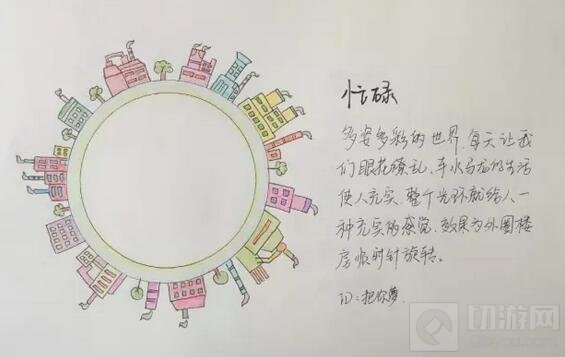 忙碌
多姿多彩的世界,每天让我
们眼花瞭乱、车水马龙的生活
使人充实,整个光环就给人一
种充实的感觉,效果为外圈楼
房顺时针旋转。
ID:把你萝
切游网
Qieyou.com